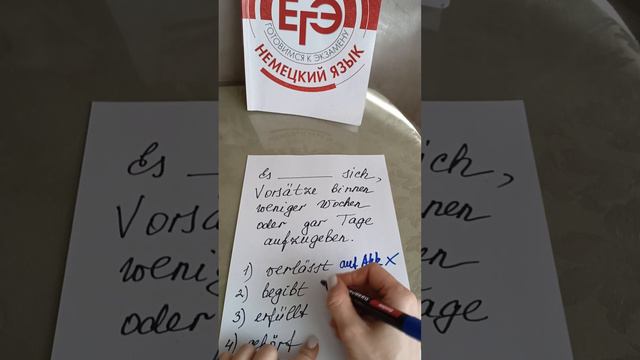 ЕГЭ
ГОТОВИМСЯ К ЭКЗАМЕНУ
НЕМЕЦКИЙ ЯЗЫК
Es ______ sich,
Vorsätze binnen
weniger Wochen
oder gar Tage
aufzugeben.
1) verlässt auf Akk X
2) begibt
3) erfüllt
4) gehört